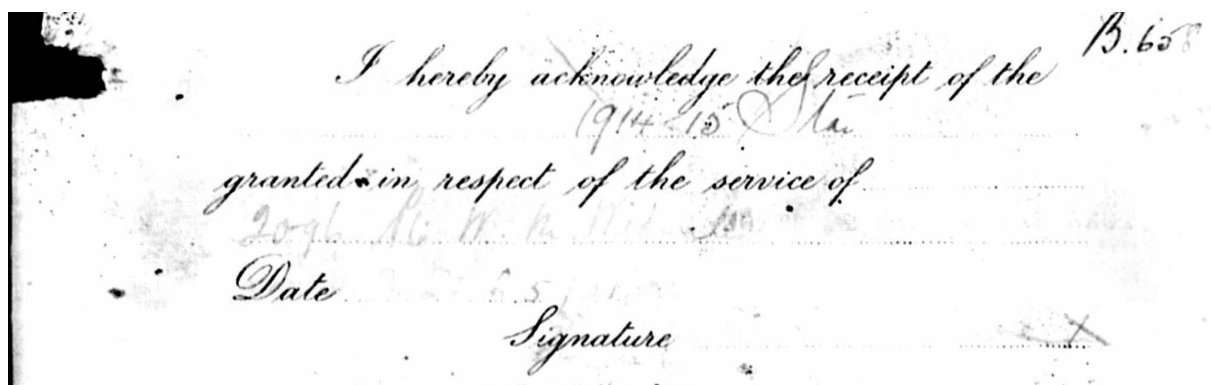 B.65
I hereby acknowledge the receipt of the
1914-15 Star
granted in respect of the service of
2096 W.
Date
Signature